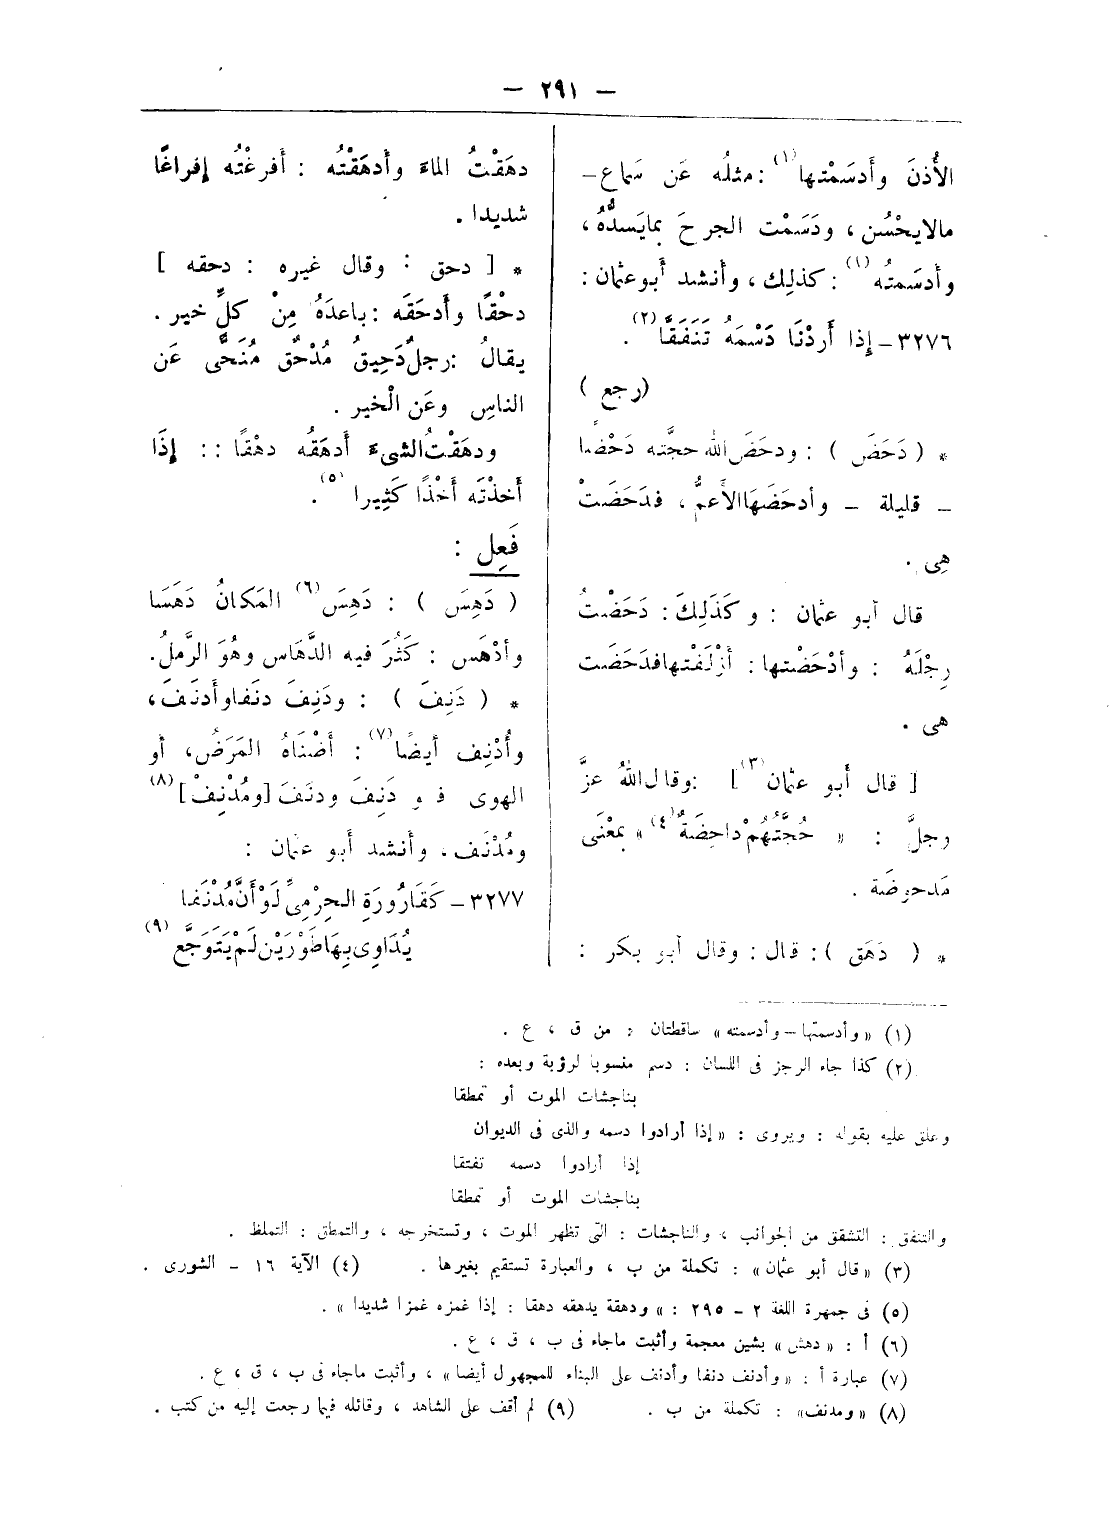 — ٢٩١ —
الأُذنَ وأَدسَمْتها(١) : مثلُه عَن سَماع –
مالايحْسُن ، ودَسَمْت الجرحَ بمايَسدُّهُ ،
وأدسَمتُه(١) : كذلِك ، وأنشد أبوعثمان :
٣٢٧٦ – إِذا أَردْنَا دَسْمَهُ تَنَفَقَّا(٢) .
(رجع)
* ( دَحَضَ ) : ودحَضَ الله حجَّته دَحْضا
– قليلة – وأدحَضَهَا الأَعمُّ ، فدَحَضَتْ
هِى .
قال أبو عثمان : وكَذَلِكَ : دَحَضْتُ
رِجْلَهُ : وأدْحَضْتها : أزْلَقْتها فدَحَضَت
هى .
[ قال أَبو عثمان(٣) ] : وقال اللهُ عزَّ
وجلَّ : « حُجَّتُهُمْ داحِضَةٌ(٤) » بمعْنَى
مَدحوضَة .
* ( دَهَق ) : قال : وقال أبو بكر :
دهَقْتُ الماءَ وأَدهَقْتُه : أَفرغْتُه إفراغًا
شديدا .
* [ دحق : وقال غيره : دحقه ]
دحْقًا وأَدحَقَه : باعدَهُ مِنْ كلِّ خير .
يقالُ : رجلٌ دَحِيقُ مُدْحَقٌ مُنَحًّى عَن
الناسِ وعَن الْخير .
ودهَقْتُ الشىء أَدهَقُه دهْقًا : : إذَا
أَخذْتَه أَخْذًا كَثِيرا(٥) .
فَعِل :
( دَهِسَ ) : دَهِسَ(٦) المَكانُ دَهَسَا
وأدْهَس : كَثُرَ فيه الدَّهَاس وهُوَ الرَّملُ .
* ( دَنِفَ ) : ودَنِفَ دنَفا وأَدنَفَ ،
وأُدْنِف أيضًا(٧) : أَضْنَاهُ المَرَضُ ، أو
الهوى ف و دَنِفَ ودنَفَ [ ومُدْنِفْ ](٨)
ومُدْنَف ، وأنشد أبو عثمان :
٣٢٧٧ – كَقَارُورَةِ الحِرْمِىِّ لَوْ أَنَّ مُدْنَفا
يُدَاوِى بِهَا طَوْرَيْن لَمْ يَتَوَجَّعِ(٩)
(١) « وأدسمتها – وأدسمته » ساقطتان : من ق ، ع .
(٢) كذا جاء الرجز فى اللسان : دسم منسوبا لرؤبة وبعده :
بناجشات الموت أو تمطقا
وعلق عليه بقوله : ويروى : « إذا أرادوا دسمه والذى فى الديوان
إذا أرادوا دسمه تفتقا
بناجشات الموت أو تمطقا
والتنفق : التشقق من الجوانب ، والناجشات : التى تظهر الموت ، وتستخرجه ، والتمطق : التملظ .
(٣) « قال أبو عثمان » : تكملة من ب ، والعبارة تستقيم بغيرها . (٤) الآية ١٦ – الشورى .
(٥) فى جمهرة اللغة ٢ – ٢٩٥ : « ودهقة يدهقه دهقا : إذا غمزه غمزا شديدا » .
(٦) أ : « دهش » بشين معجمة وأثبت ماجاء فى ب ، ق ، ع .
(٧) عبارة أ : « وأدنف دنفا وأدنف على البناء للمجهول أيضا » ، وأثبت ماجاء فى ب ، ق ، ع .
(٨) « ومدنف » : تكملة من ب . (٩) لم أقف على الشاهد ، وقائله فيما رجعت إليه من كتب .